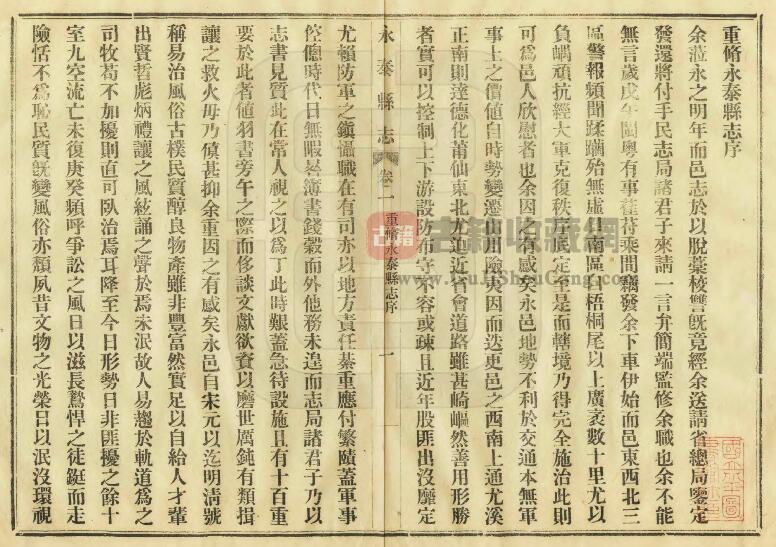 重脩永泰縣志序
余蒞永之明年而邑志於以脫藁校讐既竟經余送請省總局鑒定
發還將付手民志局諸君子來請一言弁簡端監修余職也余不能
無言歲戊午閩粵有事萑苻乘間竊發余下車伊始而邑東西北三
區警報頻聞蹂躪殆無虛日南區自梧桐尾以上廣袤數十里尤以
負嵎頑抗經大軍克復秩序底定至是而轄境乃得完全施治此則
可爲邑人欣慰者也余因之有感矣永邑地勢不利於交通本無軍
事上之價值自時勢變遷山川險夷因而迭更邑之西南上通尤溪
正南則達德化莆仙東北尤迫近省會道路雖甚崎嶇然善用形勝
者實可以控制上下游設防布守不容或疎且近年股匪出沒靡定
永泰縣志
卷一
重脩永泰縣志序
一
尤賴防軍之鎮懾職在有司亦以地方責任綦重應付繁賾蓋軍事
倥傯時代日無暇晷簿書錢穀而外他務未遑而志局諸君子乃以
志書見質此在常人視之以爲丁此時艱蓋急待設施且有十百重
要於此者値羽書旁午之際而侈談文獻欲資以磨世厲鈍有類揖
讓之救火毋乃傎甚抑余重因之有感矣永邑自宋元以迄明淸號
稱易治風俗古樸民質醇良物產雖非豐富然實足以自給人才輩
出賢哲彪炳禮讓之風絃誦之聲於焉未泯故人易趨於軌道爲之
司牧苟不加擾則直可臥治焉耳降至今日形勢日非匪擾之餘十
室九空流亡未復庚癸頻呼爭訟之風日以滋長鷙悍之徒鋌而走
險恬不爲恥民質既變風俗亦頹夙昔文物之光榮日以泯沒環視
古籍收藏網